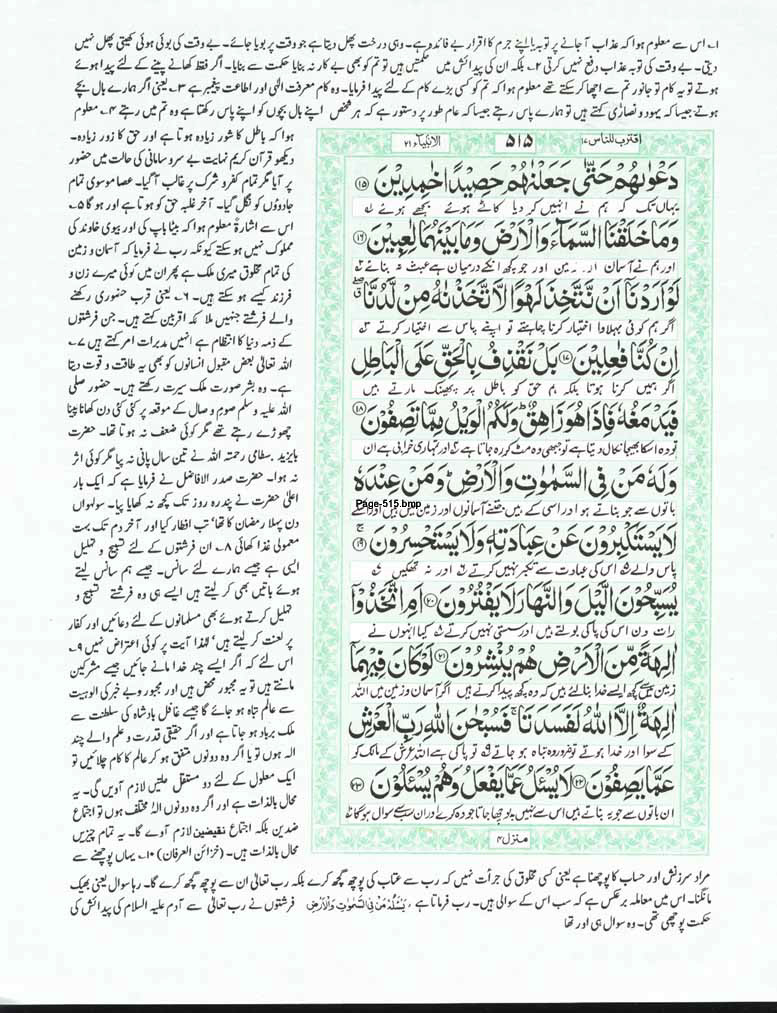 ۱۔ اس سے معلوم ہوا کہ عذاب آ جانے پر توبہ یا اپنے جرم کا اقرار بے فائدہ ہے۔ وہی درخت پھل دیتا ہے جو وقت پر بویا جائے۔ بے وقت کی بوئی ہوئی کھیتی پھل نہیں
دیتی۔ بے وقت کی توبہ عذاب دفع نہیں کرتی ۲۔ بلکہ ان کی پیدائش میں حکمتیں ہیں تو تم کو بھی بے کار نہ بنایا حکمت سے بنایا۔ اگر فقط کھانے پینے کے لئے پیدا ہوئے
ہوتے تو یہ کام تو جانور تم سے اچھا کر سکتے تھے معلوم ہوا کہ تم کو کسی بڑے کام کے لئے پیدا فرمایا۔ وہ کام معرفت الٰہی اور اطاعت پیغمبر ہے ۳۔ یعنی اگر ہمارے بال بچے
ہوتے جیسا کہ یہود و نصاریٰ کہتے ہیں تو ہمارے پاس رہتے جیسا کہ عام طور پر دستور ہے کہ ہر شخص اپنے بال بچوں کو اپنے پاس رکھتا ہے وہ تم میں رہتے ۴۔ معلوم
اقترب للناس ۱۷
۵۱۵
الانبیاء ۲۱
دَعْوٰىهُمْ حَتّٰى جَعَلْنٰهُمْ حَصِيْدًا خٰمِدِيْنَ ﴿۱۵﴾
یہاں تک کہ ہم نے انہیں کر دیا کاٹے ہوئے بجھے ہوئے
وَمَا خَلَقْنَا السَّمَآءَ وَالْاَرْضَ وَمَا بَيْنَهُمَا لٰعِبِيْنَ ﴿۱۶﴾
اور ہم نے آسمان اور زمین اور جو کچھ انکے درمیان ہے عبث نہ بنائے
لَوْ اَرَدْنَآ اَنْ نَّتَّخِذَ لَهْوًا لَّاتَّخَذْنٰهُ مِنْ لَّدُنَّآ
اگر ہم کوئی بہلاوا اختیار کرنا چاہتے تو اپنے پاس سے اختیار کرتے
اِنْ كُنَّا فٰعِلِيْنَ ﴿۱۷﴾ بَلْ نَقْذِفُ بِالْحَقِّ عَلَى الْبَاطِلِ
اگر ہمیں کرنا ہوتا بلکہ ہم حق کو باطل پر پھینک مارتے ہیں
فَيَدْمَغُهٗ فَاِذَا هُوَ زَاهِقٌ وَلَكُمُ الْوَيْلُ مِمَّا تَصِفُوْنَ ﴿۱۸﴾
تو وہ اسکا بھیجا نکال دیتا ہے تو جبھی وہ مٹ کر رہ جاتا ہے اور تمہاری خرابی ہے ان
وَلَهٗ مَنْ فِى السَّمٰوٰتِ وَالْاَرْضِ وَمَنْ عِنْدَهٗ
Page-515.bmp
باتوں سے جو بناتے ہو اور اسی کے ہیں جتنے آسمانوں اور زمین میں ہیں اور اسکے
لَا يَسْتَكْبِرُوْنَ عَنْ عِبَادَتِهٖ وَلَا يَسْتَحْسِرُوْنَ ﴿۱۹﴾
پاس والے اس کی عبادت سے تکبر نہیں کرتے اور نہ تھکیں
يُسَبِّحُوْنَ الَّيْلَ وَالنَّهَارَ لَا يَفْتُرُوْنَ ﴿۲۰﴾ اَمِ اتَّخَذُوْٓا
رات دن اس کی پاکی بولتے ہیں اور سستی نہیں کرتے کیا انہوں نے
اٰلِهَةً مِّنَ الْاَرْضِ هُمْ يُنْشِرُوْنَ ﴿۲۱﴾ لَوْ كَانَ فِيْهِمَآ
زمین میں سے کچھ ایسے خدا بنالئے ہیں کہ وہ کچھ پیدا کرتے ہیں اگر آسمان و زمین میں اللہ
اٰلِهَةٌ اِلَّا اللّٰهُ لَفَسَدَتَا فَسُبْحٰنَ اللّٰهِ رَبِّ الْعَرْشِ
کے سوا اور خدا ہوتے تو ضرور وہ تباہ ہو جاتے تو پاکی ہے اللہ عرش کے مالک کو
عَمَّا يَصِفُوْنَ ﴿۲۲﴾ لَا يُسْـَٔلُ عَمَّا يَفْعَلُ وَهُمْ يُسْـَٔلُوْنَ ﴿۲۳﴾
ان باتوں سے جو یہ بناتے ہیں اس سے نہیں پوچھا جاتا جو وہ کرے اور ان سب سے سوال ہوگا
منزل ۴
ہوا کہ باطل کا شور زیادہ ہوتا ہے اور حق کا زور زیادہ۔
دیکھو قرآن کریم نہایت بے سرو سامانی کی حالت میں حضور
پر آیا مگر تمام کفرو شرک پر غالب آ گیا۔ عصا موسوی تمام
جادوؤں کو نگل گیا۔ آخر غلبہ حق کو ہوتا ہے اور ہو گا ۵۔
اس سے اشارۃً معلوم ہوا کہ بیٹا باپ کی اور بیوی خاوند کی
مملوک نہیں ہو سکتے کیونکہ رب نے فرمایا کہ آسمان و زمین
کی تمام مخلوق میری ملک ہے پھر ان میں کوئی میرے زن و
فرزند کیسے ہو سکتے ہیں۔ ۶۔ یعنی قرب حضوری رکھنے
والے فرشتے جنہیں ملائکہ مقربین کہتے ہیں۔ جن فرشتوں
کے ذمہ دنیا کا انتظام ہے انہیں مدبرات امر کہتے ہیں ۷۔
اللہ تعالٰی بعض مقبول انسانوں کو بھی یہ طاقت و قوت دیتا
ہے۔ وہ بشر صورت ملک سیرت رکھتے ہیں۔ حضور صلی
اللہ علیہ وسلم صوم و صال کے موقعہ پر کئی کئی دن کھانا پینا
چھوڑے رہتے تھے مگر کوئی ضعف نہ ہوتا تھا۔ حضرت
بایزید بسطامی رحمتہ اللہ نے تین سال پانی نہ پیا مگر کوئی اثر
نہ ہوا۔ حضرت صدر الافاضل نے فرمایا ہے کہ ایک بار
اعلیٰ حضرت نے پندرہ روز تک کچھ نہ کھایا پیا۔ سولہواں
دن پہلا رمضان کا تھا تب افطار کیا اور آخر دم تک بہت
معمولی غذا کھائی ۸۔ ان فرشتوں کے لئے تسبیح و تہلیل
ایسی ہے جیسے ہمارے لئے سانس۔ جیسے ہم سانس لیتے
ہوئے باتیں بھی کر لیتے ہیں ایسے ہی وہ فرشتے تسبیح و
تہلیل کرتے ہوئے بھی مسلمانوں کے لئے دعائیں اور کفار
پر لعنت کر لیتے ہیں لہٰذا آیت پر کوئی اعتراض نہیں ۹۔
اس لئے کہ اگر ایسے چند خدا مانے جائیں جیسے مشرکین
مانتے ہیں تو یہ مجبور محض ہیں اور مجبور و بے خبر کی الوہیت
سے عالم تباہ ہو جائے گا جیسے غافل بادشاہ کی سلطنت سے
ملک برباد ہو جاتا ہے اور اگر حقیقی قدرت و علم والے چند
الٰہ ہوں تو یا اگر وہ دونوں متفق ہو کر عالم کا کام چلائیں تو
ایک معلول کے لئے دو مستقل علتیں لازم آویں گی۔ یہ
محال بالذات ہے اور اگر وہ دونوں الٰہ مختلف ہوں تو اجتماع
ضدین بلکہ اجتماع نقیضین لازم آوے گا۔ یہ تمام چیزیں
محال بالذات ہیں۔ (خزائن العرفان) ۱۰۔ یہاں پوچھنے سے
مراد سرزنش اور حساب کا پوچھنا ہے یعنی کسی مخلوق کی جرأت نہیں کہ رب سے عتاب کی پوچھ گچھ کرے بلکہ رب تعالٰی ان سے پوچھ گچھ کرے گا۔ رہا سوال یعنی بھیک
مانگنا۔ اس میں معاملہ بر عکس ہے کہ سب اس کے سوالی ہیں۔ رب فرماتا ہے يَسْـَٔلُهٗ مَنْ فِى السَّمٰوٰتِ وَالْاَرْضِ فرشتوں نے رب تعالٰی سے آدم علیہ السلام کی پیدائش کی
حکمت پوچھی تھی۔ وہ سوال ہی اور تھا